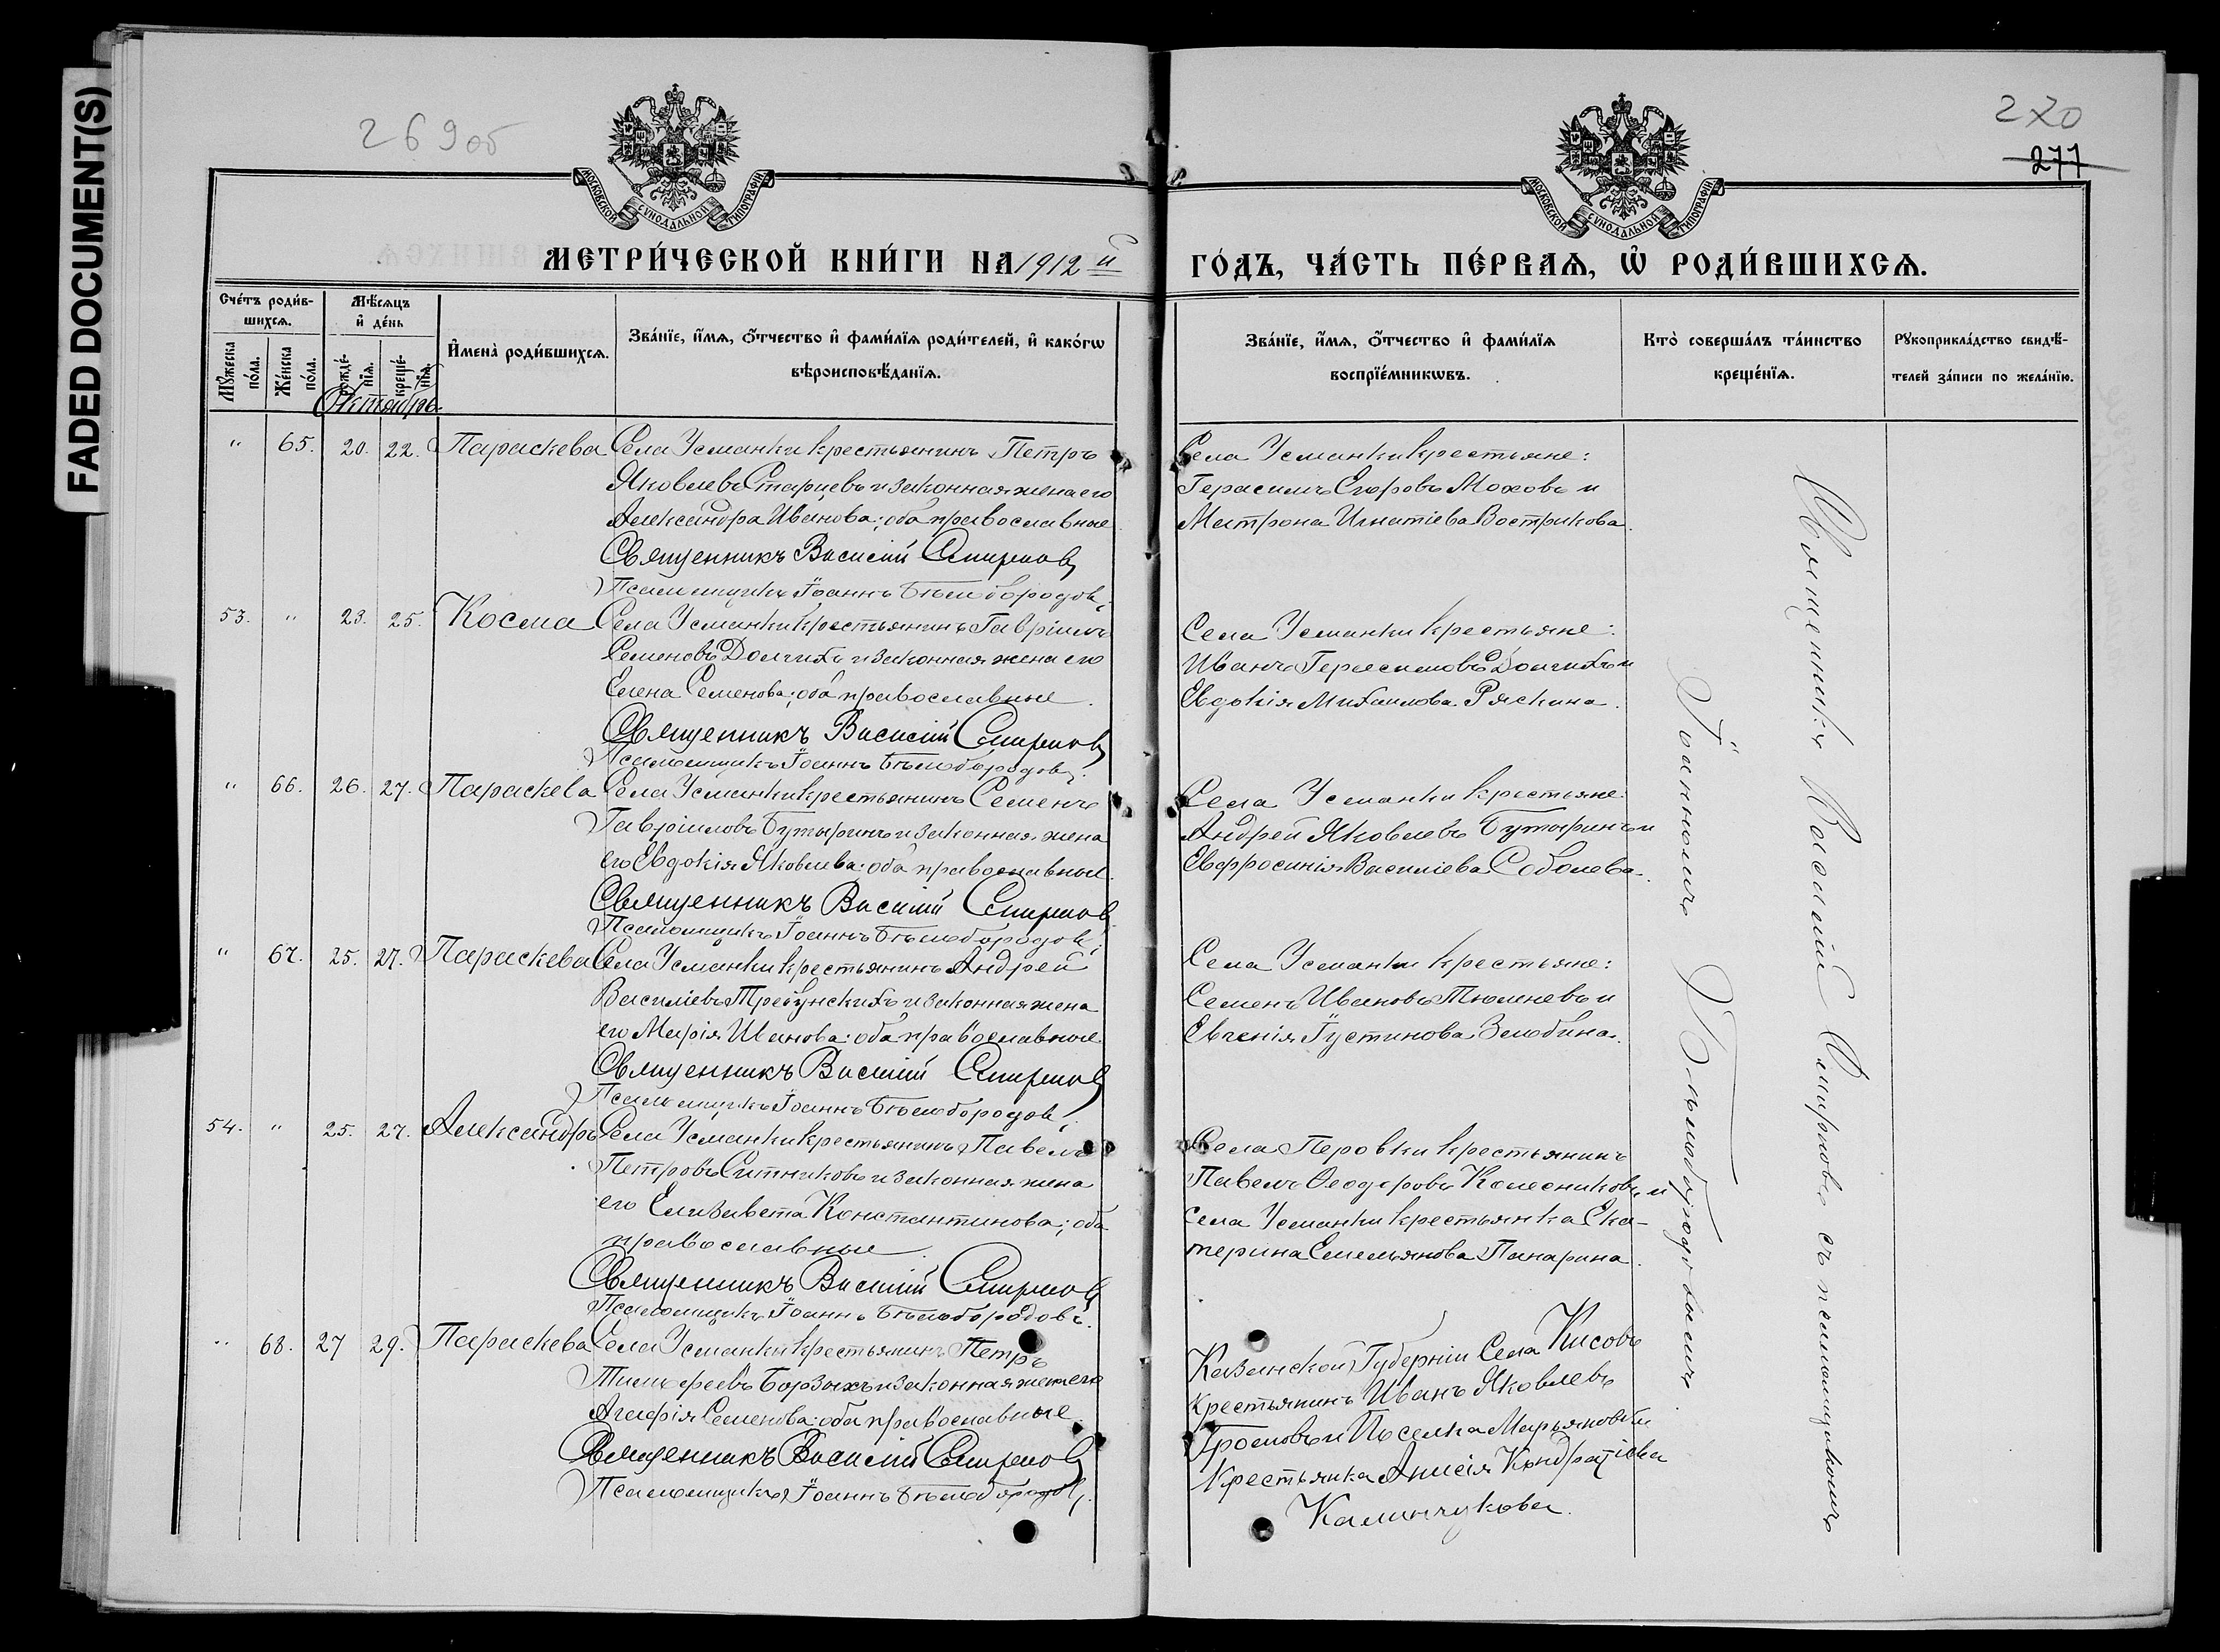 FADED DOCUMENT(S)
269об
270
277
МОСКОВСКОЙ СѴНОДАЛЬНОЙ ТИПОГРАФІИ
МОСКОВСКОЙ СѴНОДАЛЬНОЙ ТИПОГРАФІИ
МЕТРИ́ЧЕСКОЙ КНИ́ГИ НА 1912 й
ГО́ДЪ, ЧА́СТЬ ПЕ́РВАѦ, Ѡ҆ РОДИ́ВШИХСѦ.
Сче́тъ роди́в-
шихсѧ.
Мѣ́сѧцъ
и҆ де́нь
Мꙋ́жеска
по́ла.
Же́нска
по́ла.
рожде́-
нїѧ.
креще́-
нїѧ.
И҆мена̀ роди́вшихсѧ.
Зва́нїе, и҆́мѧ, ѻ҆́тчество и҆ фами́лїѧ роди́телей, и҆ како́гѡ
вѣроисповѣ́данїѧ.
Зва́нїе, и҆́мѧ, ѻ҆́тчество и҆ фами́лїѧ
воспрїе́мникѡвъ.
Кто̀ соверша́лъ та́инство
креще́нїѧ.
Рꙋкоприкла́дство свидѣ́-
телей за́писи по жела́нїю.
Октябрь
" 65. 20. 22. Параскева Села Усманки крестьянинъ Петръ
Яковлевъ Старцевъ и законная жена его
Александра Иванова; оба православные
Священникъ Василий Смирновъ
Псаломщикъ Іоаннъ Бѣлобородовъ.
Села Усманки крестьяне:
Герасимъ Егоровъ Моховъ и
Матрона Игнатіева Вострикова.
53. " 23. 25. Косма Села Усманки крестьянинъ Гавріилъ
Семеновъ Долгихъ и законная жена его
Елена Семенова; оба православные.
Священникъ Василій Смирновъ
Псаломщикъ Іоаннъ Бѣлобородовъ.
Села Усманки крестьяне:
Иванъ Герасимовъ Долгихъ и
Евдокія Михаилова Ряскина.
" 66. 26. 27. Параскева Села Усманки крестьянинъ Семенъ
Гавріиловъ Бутыринъ и законная жена
его Евдокія Яковлева; оба православные.
Священникъ Василій Смирновъ
Псаломщикъ Іоаннъ Бѣлобородовъ.
Села Усманки крестьяне:
Андрей Яковлевъ Бутыринъ и
Евфросинія Василіева Соболева.
" 67. 25. 27. Параскева Села Усманки крестьянинъ Андрей
Василіевъ Требунскихъ и законная жена
его Марія Иванова; оба православные.
Священникъ Василій Смирновъ
Псаломщикъ Іоаннъ Бѣлобородовъ.
Села Усманки крестьяне:
Семенъ Ивановъ Тюленевъ и
Евгенія Іустинова Злобина.
54. " 25. 27. Александръ Села Усманки крестьянинъ Павелъ
Петровъ Ситниковъ и законная жена
его Елизавета Константинова; оба
православные.
Священникъ Василій Смирновъ
Псаломщикъ Іоаннъ Бѣлобородовъ.
Села Перовки крестьянинъ
Павелъ Ѳеодоровъ Колесниковъ и
села Усманки крестьянка Ека-
терина Емельянова Панарина.
" 68. 27 29. Параскева Села Усманки крестьянинъ Петръ
Тимофеевъ Борзыхъ и законная жена его
Агафія Семенова; оба православные.
Священникъ Василій Смирновъ
Псаломщикъ Іоаннъ Бѣлобородовъ.
Казанской Губерніи Села
крестьянинъ Иванъ Яковлевъ
и Поселка Марьяновки
Крестьянка Анисія Кондратіева
Калинчукова.
Священникъ Василій Смирновъ съ псаломщикомъ
Іоанномъ Бѣлобородовымъ